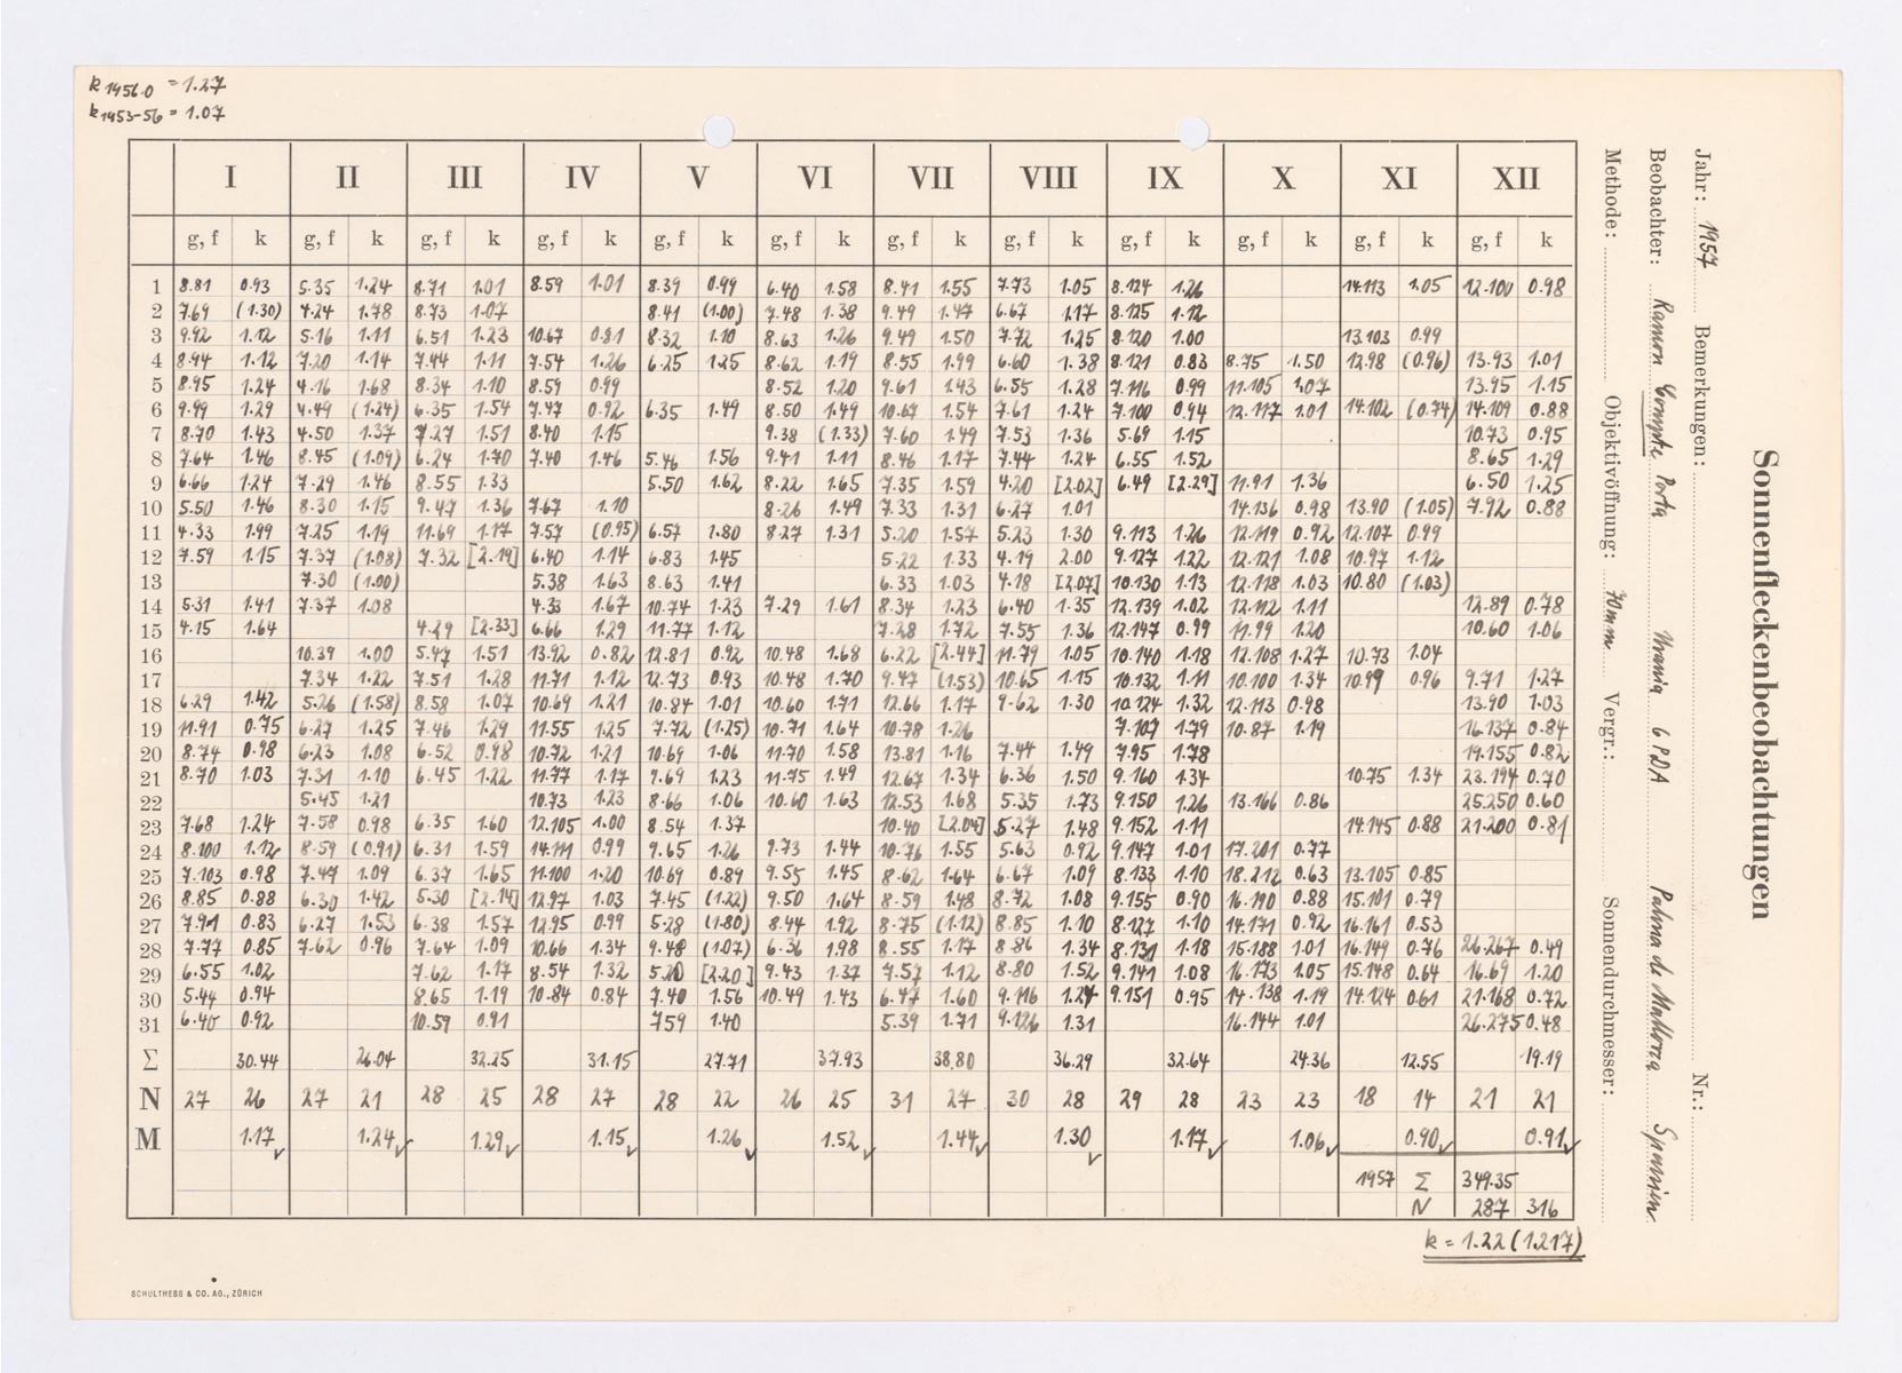 k 1956.0 = 1.27
k 1953-56 = 1.07
I II III IV V VI VII VIII IX X XI XII
g, f k g, f k g, f k g, f k g, f k g, f k g, f k g, f k g, f k g, f k g, f k g, f k
1 8.81 0.93 5.35 1.24 8.71 1.01 8.59 1.01 8.39 0.99 6.40 1.58 8.41 1.55 7.73 1.05 8.124 1.26 14.113 1.05 12.100 0.98
2 7.69 (1.30) 4.24 1.78 8.73 1.07 8.41 (1.00) 7.48 1.38 9.49 1.47 6.67 1.17 8.125 1.12
3 9.92 1.12 5.16 1.11 6.51 1.23 10.67 0.81 8.32 1.10 8.63 1.26 9.49 1.50 7.72 1.25 8.120 1.00 13.103 0.99
4 8.94 1.12 7.20 1.14 7.44 1.11 7.54 1.26 6.25 1.25 8.62 1.19 8.55 1.99 6.60 1.38 8.121 0.83 8.75 1.50 12.98 (0.96) 13.93 1.01
5 8.95 1.24 4.16 1.68 8.34 1.10 8.59 0.99 8.52 1.20 9.61 1.43 6.55 1.28 7.116 0.99 11.105 1.07 13.95 1.15
6 9.99 1.29 4.49 (1.24) 6.35 1.54 7.47 0.92 6.35 1.49 8.50 1.49 10.67 1.54 7.61 1.24 7.100 0.94 12.117 1.01 14.102 (0.74) 14.109 0.88
7 8.70 1.43 4.50 1.37 7.27 1.51 8.40 1.15 9.38 (1.33) 7.60 1.49 7.53 1.36 5.69 1.15 10.73 0.95
8 7.64 1.46 8.45 (1.09) 6.24 1.70 7.40 1.46 5.46 1.56 9.41 1.11 8.46 1.17 7.44 1.24 6.55 1.52 8.65 1.29
9 6.66 1.24 7.29 1.46 8.55 1.33 5.50 1.62 8.22 1.65 7.35 1.59 4.20 [2.02] 6.49 [2.29] 11.91 1.36 6.50 1.25
10 5.50 1.46 8.30 1.15 9.47 1.36 7.67 1.10 8.26 1.49 7.33 1.31 6.27 1.01 14.136 0.98 13.90 (1.05) 7.92 0.88
11 4.33 1.99 7.25 1.19 11.69 1.17 7.57 (0.95) 6.57 1.80 8.27 1.31 5.20 1.57 5.23 1.30 9.113 1.26 12.119 0.92 12.107 0.99
12 7.59 1.15 7.37 (1.08) 7.32 [2.19] 6.40 1.14 6.83 1.45 5.22 1.33 4.19 2.00 9.127 1.22 12.121 1.08 10.97 1.12
13 7.30 (1.00) 5.38 1.63 8.63 1.41 6.33 1.03 4.18 [2.07] 10.130 1.13 12.118 1.03 10.80 (1.03)
14 5.31 1.41 7.37 1.08 4.33 1.67 10.74 1.23 7.29 1.61 8.34 1.23 6.40 1.35 12.139 1.02 12.112 1.11 12.89 0.78
15 4.15 1.64 4.29 [2.33] 6.66 1.29 11.77 1.12 7.28 1.72 7.55 1.36 12.147 0.99 11.99 1.20 10.60 1.06
16 10.39 1.00 5.47 1.51 13.92 0.82 12.81 0.92 10.48 1.68 6.22 [2.44] 11.79 1.05 10.140 1.18 12.108 1.27 10.73 1.04
17 7.34 1.22 7.51 1.28 11.71 1.12 12.73 0.93 10.48 1.70 9.47 (1.53) 10.65 1.15 10.132 1.11 10.100 1.34 10.99 0.96 9.71 1.27
18 6.29 1.42 5.26 (1.58) 8.58 1.07 10.69 1.21 10.84 1.01 10.60 1.71 12.66 1.17 9.62 1.30 10.124 1.32 12.113 0.98 13.90 1.03
19 11.91 0.75 6.27 1.25 7.46 1.29 11.55 1.25 7.72 (1.25) 10.71 1.64 10.78 1.26 7.107 1.79 10.87 1.19 16.137 0.84
20 8.74 0.98 6.23 1.08 6.52 0.98 10.72 1.21 10.69 1.06 11.70 1.58 13.81 1.16 7.44 1.49 7.95 1.78 19.155 0.82
21 8.70 1.03 7.31 1.10 6.45 1.22 11.77 1.17 9.69 1.23 11.75 1.49 12.67 1.34 6.36 1.50 9.160 1.34 10.75 1.34 23.194 0.70
22 5.45 1.21 10.73 1.23 8.66 1.06 10.60 1.63 12.53 1.68 5.35 1.73 9.150 1.26 13.166 0.86 25.250 0.60
23 7.68 1.24 7.58 0.98 6.35 1.60 12.105 1.00 8.54 1.37 10.40 [2.04] 5.27 1.48 9.152 1.11 14.145 0.88 21.200 0.81
24 8.100 1.12 8.59 (0.91) 6.31 1.59 14.111 0.99 9.65 1.26 9.73 1.44 10.76 1.55 5.63 0.92 9.147 1.01 17.201 0.77
25 7.103 0.98 7.49 1.09 6.37 1.65 11.100 1.20 10.69 0.89 9.55 1.45 8.62 1.64 6.67 1.09 8.133 1.10 18.212 0.63 13.105 0.85
26 8.85 0.88 6.30 1.42 5.30 [2.14] 12.97 1.03 7.45 (1.22) 9.50 1.64 8.59 1.48 8.72 1.08 9.155 0.90 16.190 0.88 15.101 0.79
27 7.91 0.83 6.27 1.53 6.38 1.57 12.95 0.99 5.28 (1.80) 8.44 1.92 8.75 (1.12) 8.85 1.10 8.127 1.10 14.171 0.92 16.161 0.53
28 7.77 0.85 7.62 0.96 7.64 1.09 10.66 1.34 9.48 (1.07) 6.36 1.98 8.55 1.17 8.86 1.34 8.131 1.18 15.188 1.01 16.149 0.76 26.267 0.49
29 6.55 1.02 7.62 1.17 8.54 1.32 5.20 [2.20] 9.43 1.37 7.57 1.12 8.80 1.52 9.141 1.08 16.173 1.05 15.148 0.64 16.69 1.20
30 5.44 0.94 8.65 1.19 10.84 0.84 7.40 1.56 10.49 1.43 6.47 1.60 9.116 1.24 9.151 0.95 14.138 1.19 14.124 0.61 21.168 0.72
31 6.40 0.92 10.59 0.91 759 1.40 5.39 1.71 9.126 1.31 16.144 1.01 26.275 0.48
Σ 30.44 26.04 32.25 31.15 27.71 37.93 38.80 36.29 32.64 24.36 12.55 19.19
N 27 26 27 21 28 25 28 27 28 22 26 25 31 27 30 28 29 28 23 23 18 14 21 21
M 1.17 1.24 1.29 1.15 1.26 1.52 1.44 1.30 1.17 1.06 0.90 0.91
1957 Σ 349.35
N 287 316
k = 1.22 (1.217)
SCHULTHESS & CO. AG., ZÜRICH
Sonnenfleckenbeobachtungen
Jahr: 1957 Bemerkungen: Nr.:
Beobachter: Ramon Compte Porta Urania 6 PDA Palma de Mallorca Spanien
Methode: Objektivöffnung: 70mm Vergr.: Sonnendurchmesser: